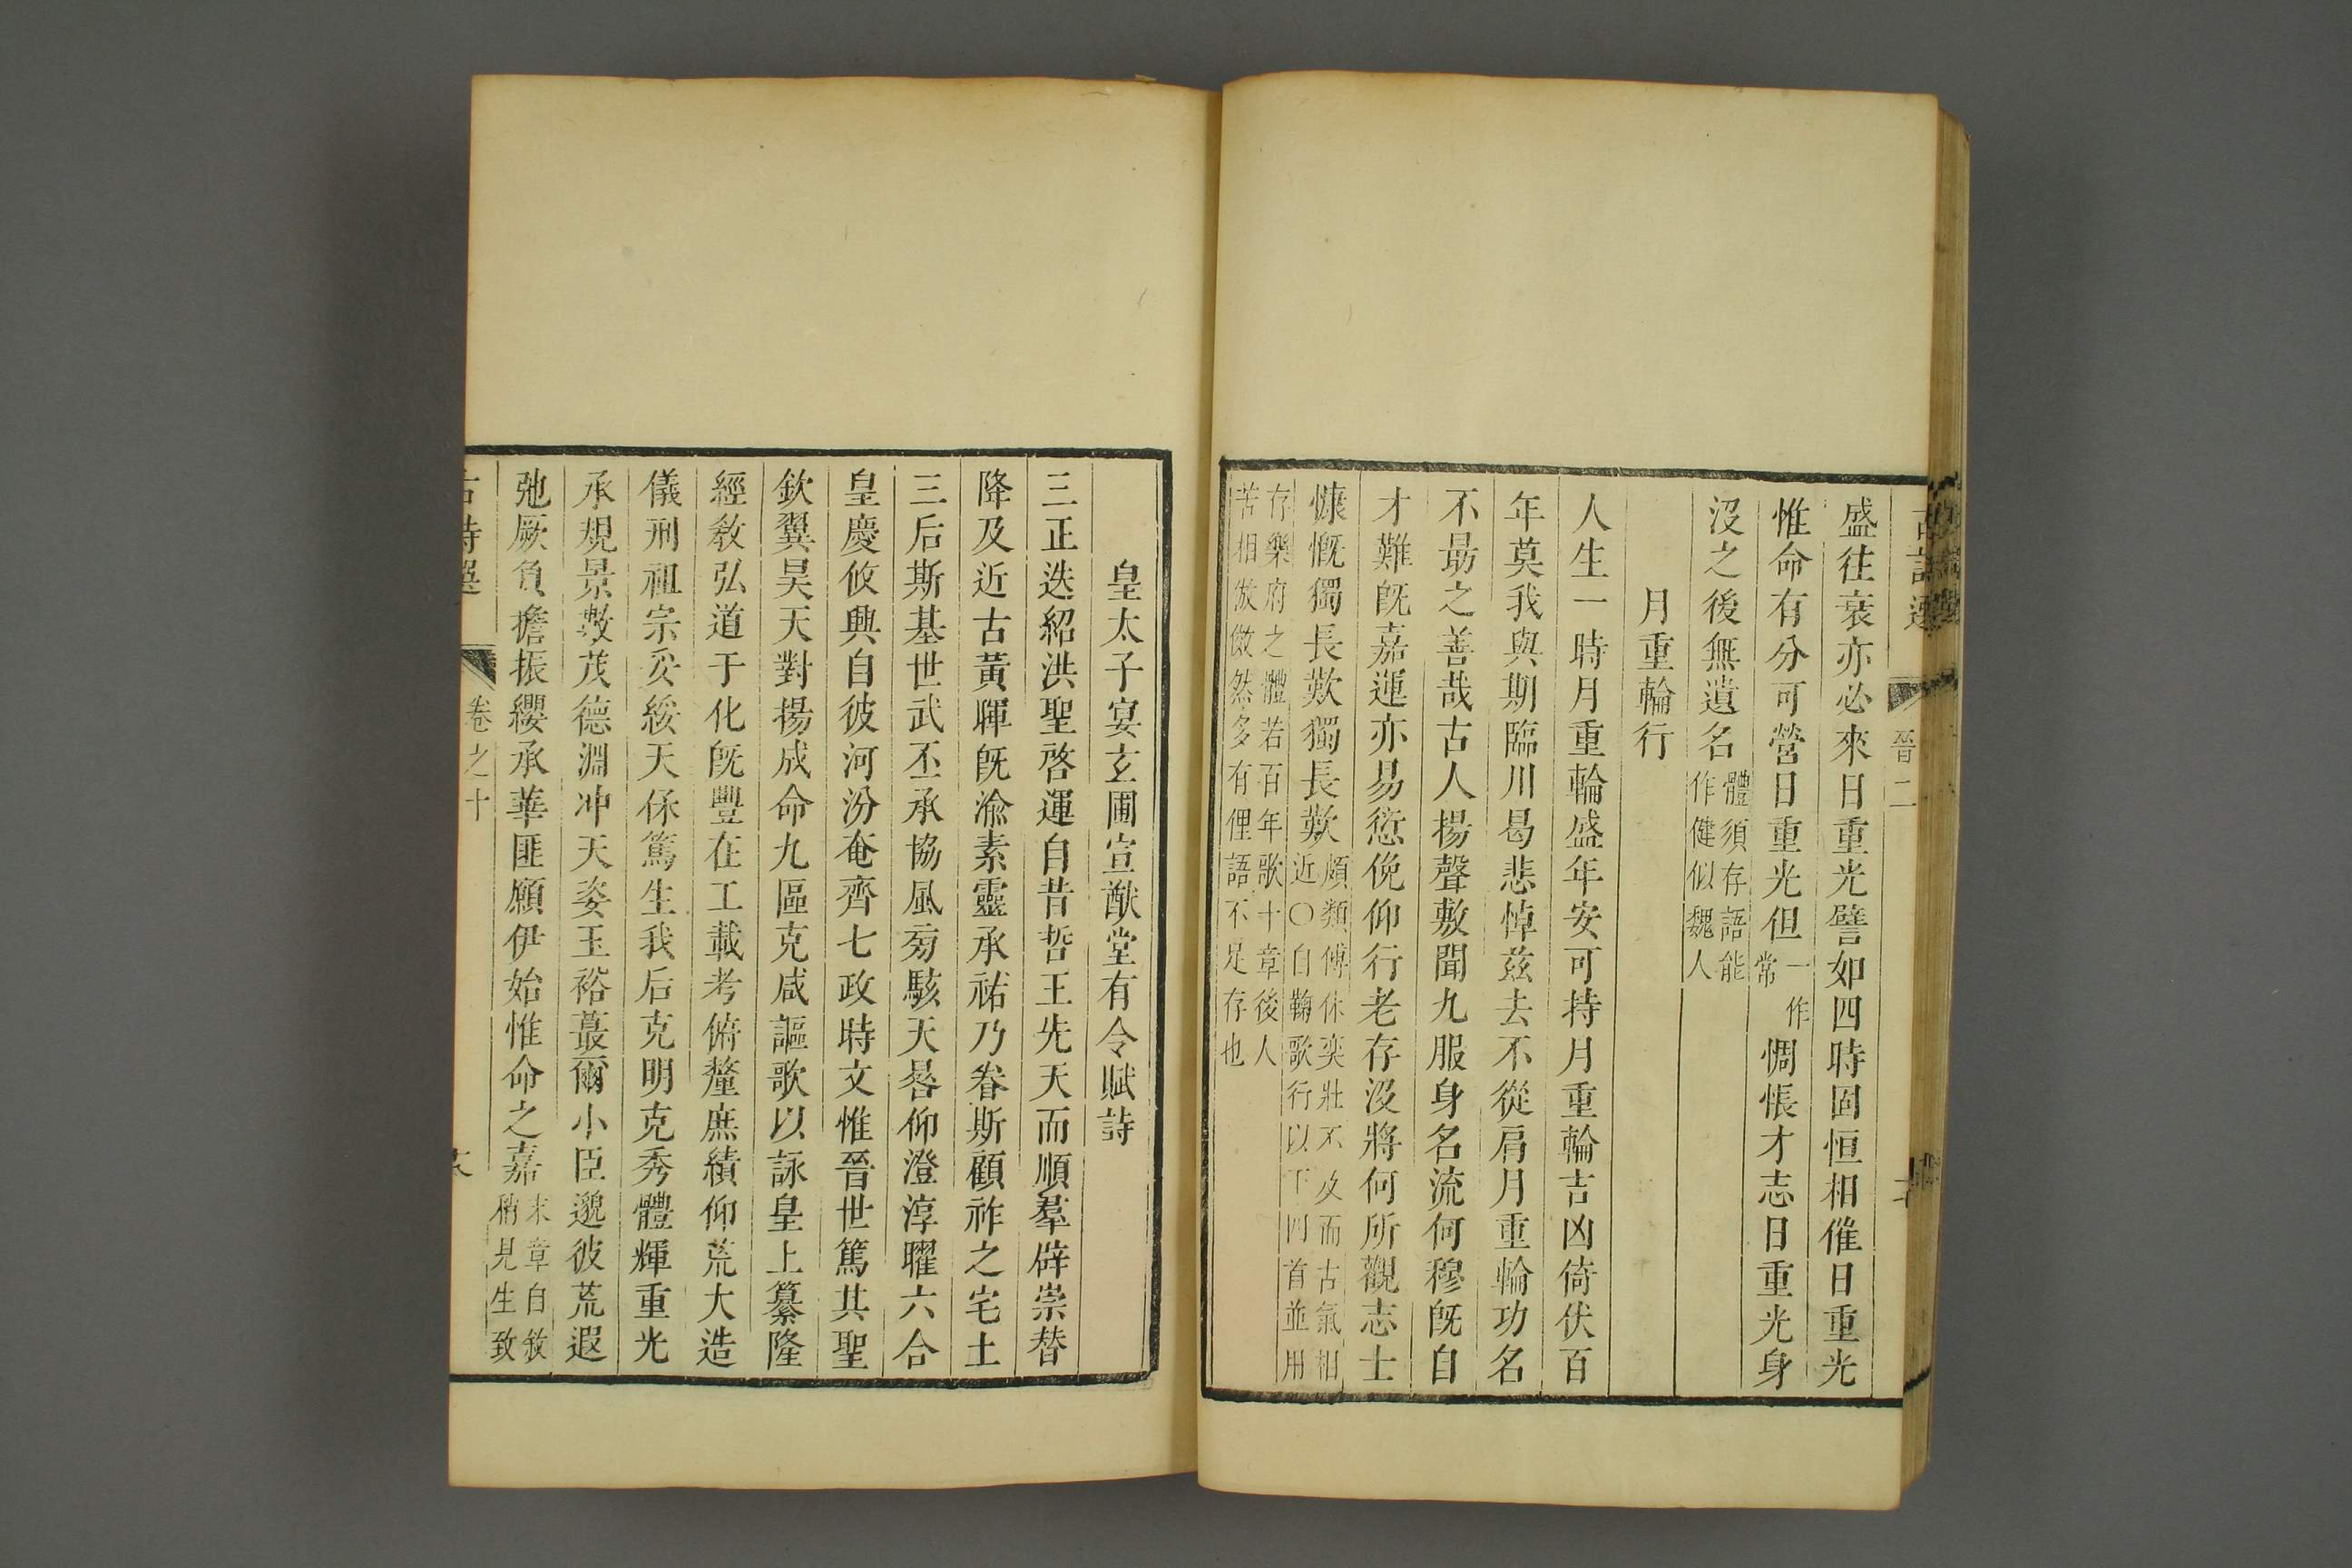 晉二
盛往衰亦必來日重光譬如四時固恒相催日重光
惟命有分可營日重光但一作常惆悵才志日重光身
沒之後無遺名體須存語能作健似魏人
月重輪行
人生一時月重輪盛年安可持月重輪吉凶倚伏百
年莫我與期臨川曷悲悼茲去不從肩月重輪功名
不勗之善哉古人揚聲敷聞九服身名流何穆既自
才難既嘉運亦易愆俛仰行老存沒將何所觀志士
慷慨獨長歎獨長歎頗類傅休奕壯不及而古氣相近○自鞠歌行以下四首並用
存樂府之體若百年歌十章後人苦相倣傚然多有俚語不足存也
皇太子宴玄圃宣猷堂有令賦詩
三正迭紹洪聖啓運自昔哲王先天而順羣辟崇替
降及近古黃暉既渝素靈承祐乃眷斯顧祚之宅土
三后斯基世武丕承協風旁駭天晷仰澄淳曜六合
皇慶攸興自彼河汾奄齊七政時文惟晉世篤其聖
欽翼昊天對揚成命九區克咸謳歌以詠皇上纂隆
經敎弘道于化既豐在工載考俯釐庶績仰荒大造
儀刑祖宗妥綏天保篤生我后克明克秀體輝重光
承規景數茂德淵冲天姿玉裕蕞爾小臣邈彼荒遐
弛厥負擔振纓承華匪願伊始惟命之嘉末章自敘稍見生致
古詩選 卷之十